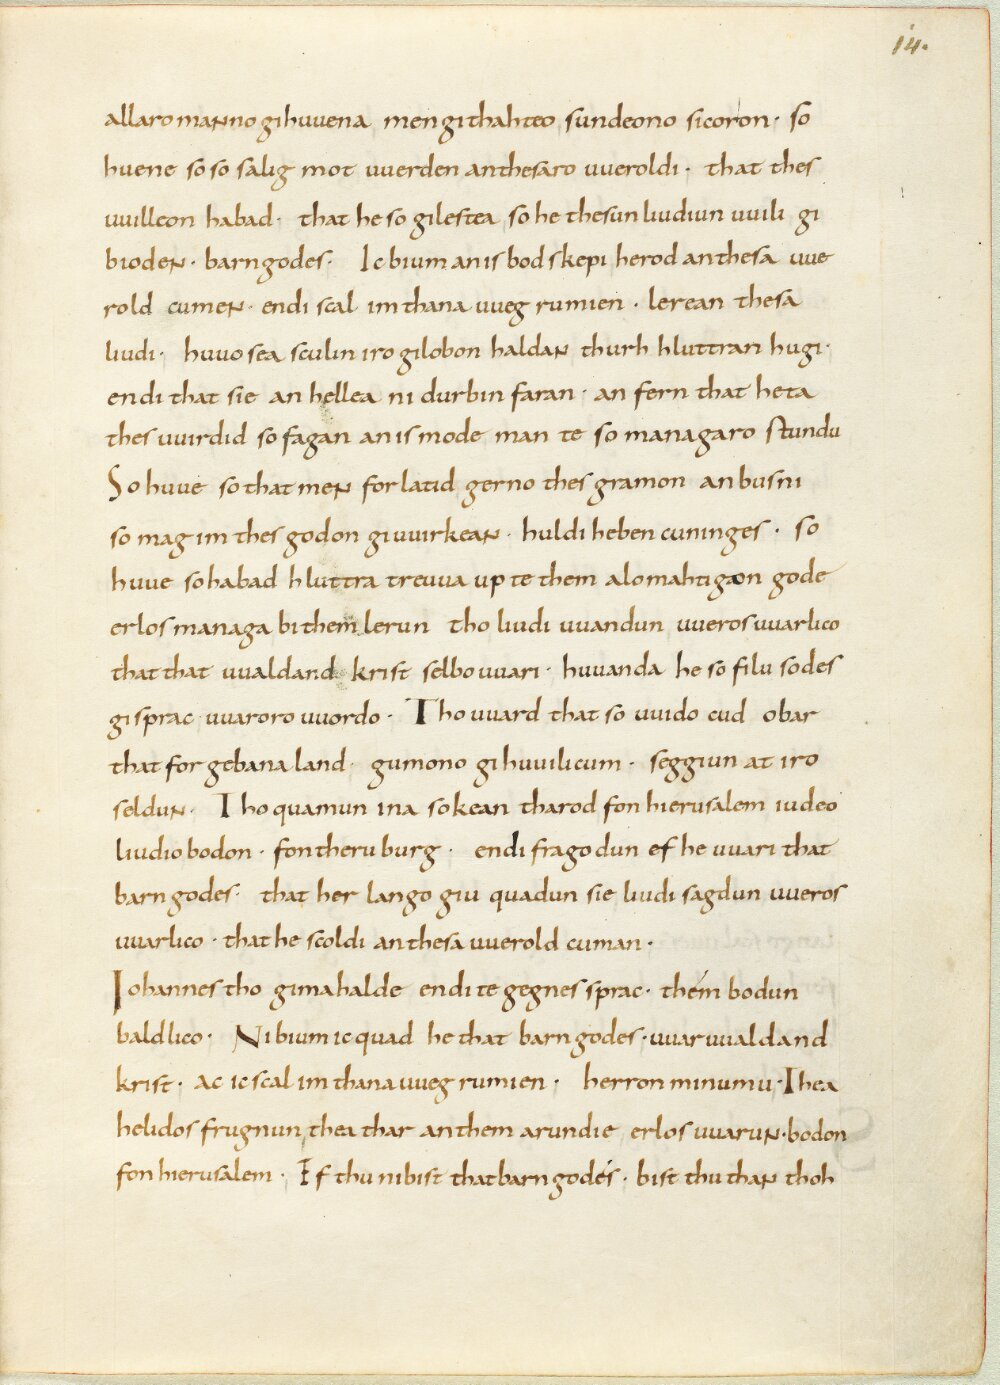 14.
allaro manno gihuuena mengithahteo sundeono sicoron · so
huene so so salig mot uuerden an thesaro uueroldi · that thes
uuilleon habad · that he so gilestea so he thesun liudiun uuili gi
bioden · barn godes · Ic bium an is bodskepi herod an thesa uue
rold cumen · endi scal im thana uueg rumien · lerean thesa
liudi · huuo sea sculin iro gilobon haldan thurh hluttran hugi ·
endi that sie an hellea ni durbin faran · an fern that heta
thes uuirdid so fagan an is mode man te so managaro stundu
So huue so that men forlatid gerno thes gramon anbusni
so mag im thes godon giuuirkean · huldi heben cuninges · so
huue so habad hluttra treuua up te them alomahtigon gode
erlos managa bi them lerun tho liudi uuandun uueros uuarlico
that that uualdand krist selbo uuari · huuanda he so filu sodes
gisprac uuaroro uuordo · Tho uuard that so uuido cud obar
that forgebana land · gumono gihuuilicum · seggiun at iro
seldun · Tho quamun ina sokean tharod fon hierusalem iudeo
liudio bodon · fon theru burg · endi fragodun ef he uuari that
barn godes · that her lango giu quadun sie liudi sagdun uueros
uuarlico · that he scoldi an thesa uuerold cuman ·
Iohannes tho gimahalde endi te gegnes sprac · them bodun
baldlico · Ni bium ic quad he that barn godes · uuar uualdand
krist · ac ic scal im thana uueg rumien · herron minumu · Thea
helidos frugnun thea thar an them arundie erlos uuarun · bodon
fon hierusalem · Ef thu ni bist that barn godes · bist thu than thoh